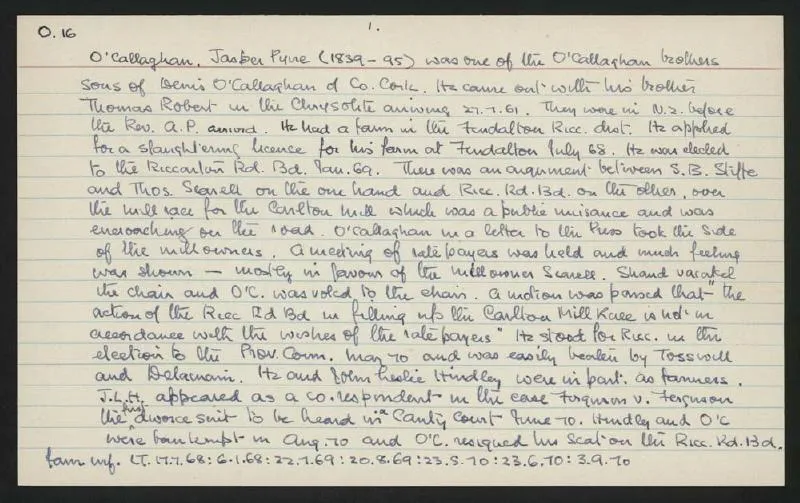 O.16
1.
O'Callaghan, Jasper Pyne (1839-95) was one of the O'Callaghan brothers
sons of Denis O'Callaghan of Co. Cork. He came out with his brother
Thomas Robert in the Chrysolite arriving 27.7.61. They were in N.Z. before
the Rev. A.P. arrived. He had a farm in the Fendalton Ricc. dist. He applied
for a slaughtering licence for his farm at Fendalton July 68. He was elected
to the Riccarton Rd. Bd. Jan. 69. There was an argument between S.B. Stiffe
and Thos. Searell on the one hand and Ricc. Rd. Bd. on the other, over
the mill race for the Carlton Mill which was a public nuisance and was
encroaching on the road. O'Callaghan in a letter to the Press took the side
of the millowners. A meeting of ratepayers was held and much feeling
was shown — mostly in favour of the millowner Searell. Shand vacated
the chair and O'C. was voted to the chair. A motion was passed that "the
action of the Ricc Rd Bd in filling up the Carlton Mill Race is not in
accordance with the wishes of the ratepayers" He stood for Ricc. in the
election to the Prov. Coun. May 70 and was easily beaten by Tosswill
and Delamain. He and John Leslie Hindley were in part. as farmers.
J.L.H. appeared as a co-respondent in the case Ferguson v. Ferguson
the first divorce suit to be heard in a Canty Court June 70. Hindley and O'C
were bankrupt in Aug. 70 and O'C. resigned his seat on the Ricc. Rd. Bd.
fam inf. LT. 17.7.68: 6.1.68: 22.7.69: 20.8.69: 23.5.70: 23.6.70: 3.9.70